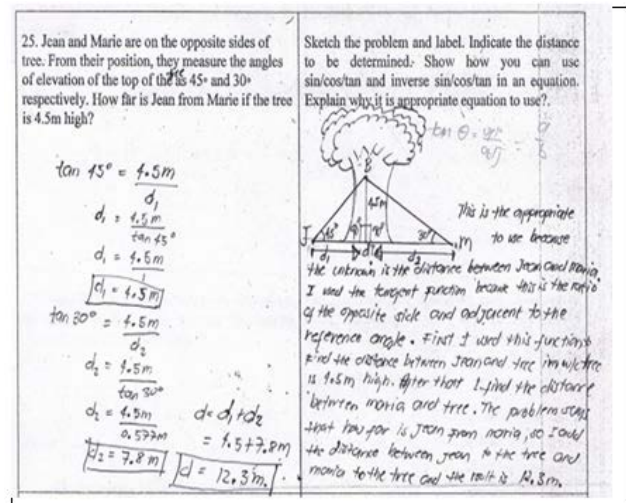 25. Jean and Marie are on the opposite sides of
tree. From their position, they measure the angles
of elevation of the top of the tree as 45° and 30°
respectively. How far is Jean from Marie if the tree
is 4.5m high?
tan 45° = 4.5m / d₁
d₁ = 4.5m / tan 45°
d₁ = 4.5m / 1
d₁ = 4.5m
tan 30° = 4.5m / d₂
d₂ = 4.5m / tan 30°
d₂ = 4.5m / 0.577m
d₂ = 7.8m
d = d₁ + d₂
= 4.5 + 7.8m
d = 12.3m.
Sketch the problem and label. Indicate the distance
to be determined. Show how you can use
sin/cos/tan and inverse sin/cos/tan in an equation.
Explain why it is appropriate equation to use?.
tan θ =
B
4.5m
J 45° 90° 90° 30° M
d₁ d d₂
This is the appropriate
to use because
the unknown is the distance between Jean and maria,
I used the tangent function because this is the ratio
of the opposite side and adjacent to the
reference angle. First I used this function
find the distance between Jean and tree tree
is 4.5m high. After that I find the distance
between maria and tree. The problem says
that how far is Jean from maria, so I add
the distance between Jean to the tree and
maria to the tree and the result is 12.3m.